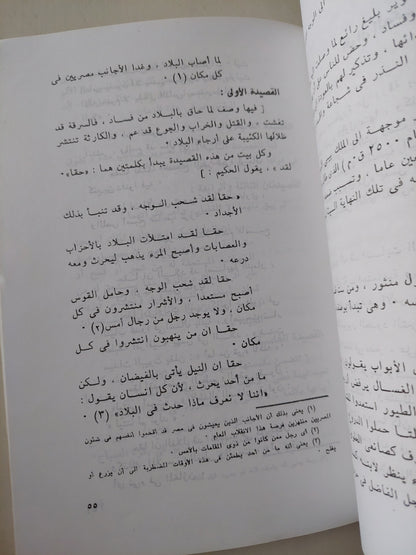 لما أصاب البلاد ، وغدا الأجانب مصريين فى
كل مكان (١) ٠
القصيدة الأولى :
[ فيها وصف لما حاق بالبلاد من فساد ، فالسرقة قد
تفشت ، والقتل والخراب والجوع قد عم ، والكارثة تنتشر
ظلالها الكئيبة على أرجاء البلاد ٠
وكل بيت من هذه القصيدة يبدأ بكلمتين هما : «حقا
لقد » ، يقول الحكيم : ]
« حقا لقد شحب الوجه ، وقد تنبأ بذلك
الأجداد ٠
حقا لقد امتلأت البلاد بالأحزاب
والعصابات وأصبح المرء يذهب ليحرث ومعه
درعه ٠
حقا لقد شحب الوجه ، وحامل القوس
أصبح مستعدا ، والأشرار منتشرون فى كل
مكان ، ولا يوجد رجل من رجال أمس(٢) ٠
حقا ان من ينهبون انتشروا فى كل
مكان ٠
حقا إن النيل يأتى بالفيضان ، ولكن
ما من أحد يحرث ، لأن كل انسان يقول :
«اننا لا نعرف ماذا حدث فى البلاد» (٣) ٠
(١) يعنى بذلك أن الأجانب الذين يعيشون فى مصر قد أقحموا أنفسهم فى شئون
المصريين منتهزين فرصة هذا الانقلاب العام ٠
(٢) أى رجل ممن كانوا من ذوى المقامات بالأمس ٠
(٣) يعنى أنه ما من أحد يطمئن فى هذه الأوقات المضطربة الى أن يزرع أو
يفلح ٠
٥٥
بليغ رائع لما
وفساد ، وحض للناس
وتذكير لهم
النذر فى
موجهة الى الملك
٢٥٠٠ ق٠م)
عاما ٠ وتسبب
فى تلك النهاية
منثور ، ومن
وهى تبدأ
الأبواب يقولون
الغسال يرفض
الطيور استعدوا
حملوا
كصانعى
ينظر لابنه
الفاضل فى